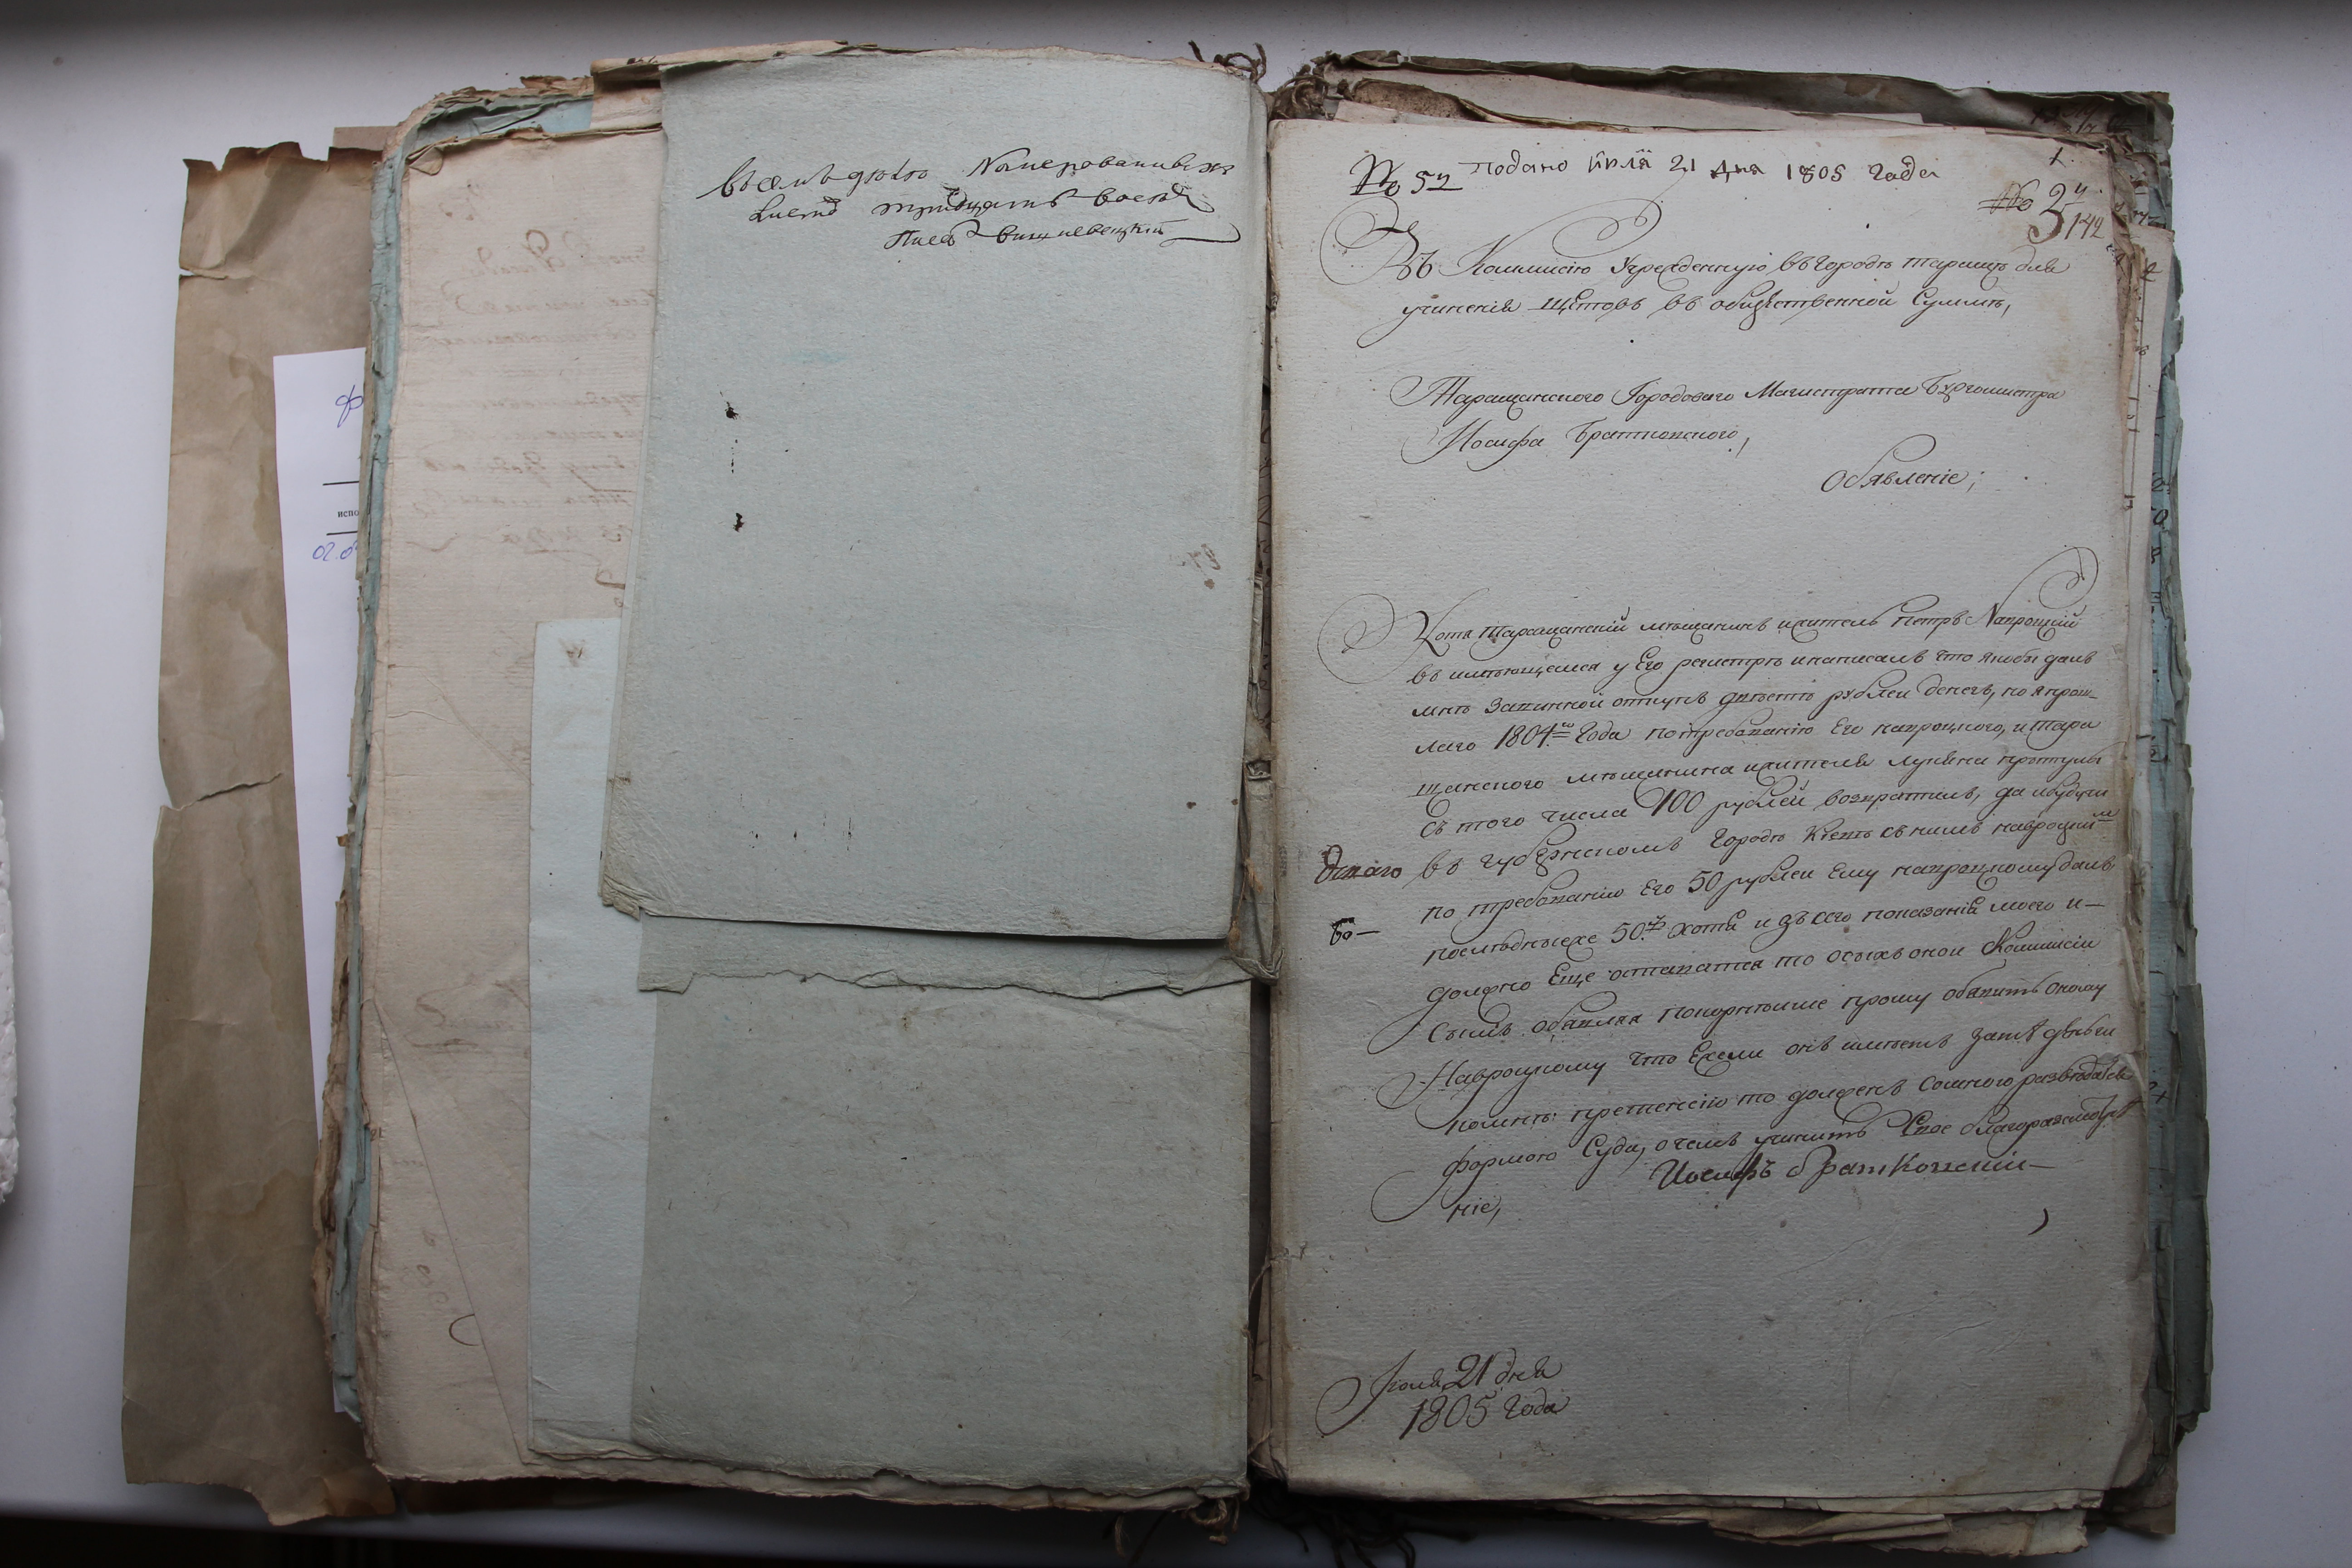 Въ семъ дѣлѣ Номерованныхъ
Листов тридцать восемь
Писецъ Вишневецкій
испо
№ 52 подано июля 21 дня 1805 года
№ 2
142
Въ Коммисію Учрежденную въ городѣ таращѣ для
учиненія щетовъ въ общественной Суммѣ,
Таращанского Городоваго Магистрата Бургомистра
Иосифа Братковского,
Обявленіе;
Хотя таращанскій мѣщанинъ и житель Петръ Навроцкій
въ имѣющемся у Его регистрѣ и написалъ что якобы далъ
мнѣ За винной откупъ двѣстѣ рублей денегъ, но я прош-
лаго 1804го Года по требованію Его навроцкого, и тара
щанского мѣщанина и жителя лукяна
съ того числа 100 рублей возвратилъ, да и будучи
въ губернскомъ Городѣ Кіевѣ съ нимъ навроцкимъ
по требованію Его 50 рублей Ему навроцкому далъ
последнѣехе 50 хотя и зъ сего показанія моего и-
должно Еще оставатся то о сыхъ оной Коммисіи
Симъ обявляя покорнѣйше прошу обявить оному
Навроцкому что Ежели онъ имѣетъ за тѣ деньги
ко мнѣ претенсію то долженъ со мною разведатся
формою Суда, о чемъ учинить Свое благоразсмотрѣ
ніе,
Иосифъ Братковский
во-
Июля 21 дня
1805 Года